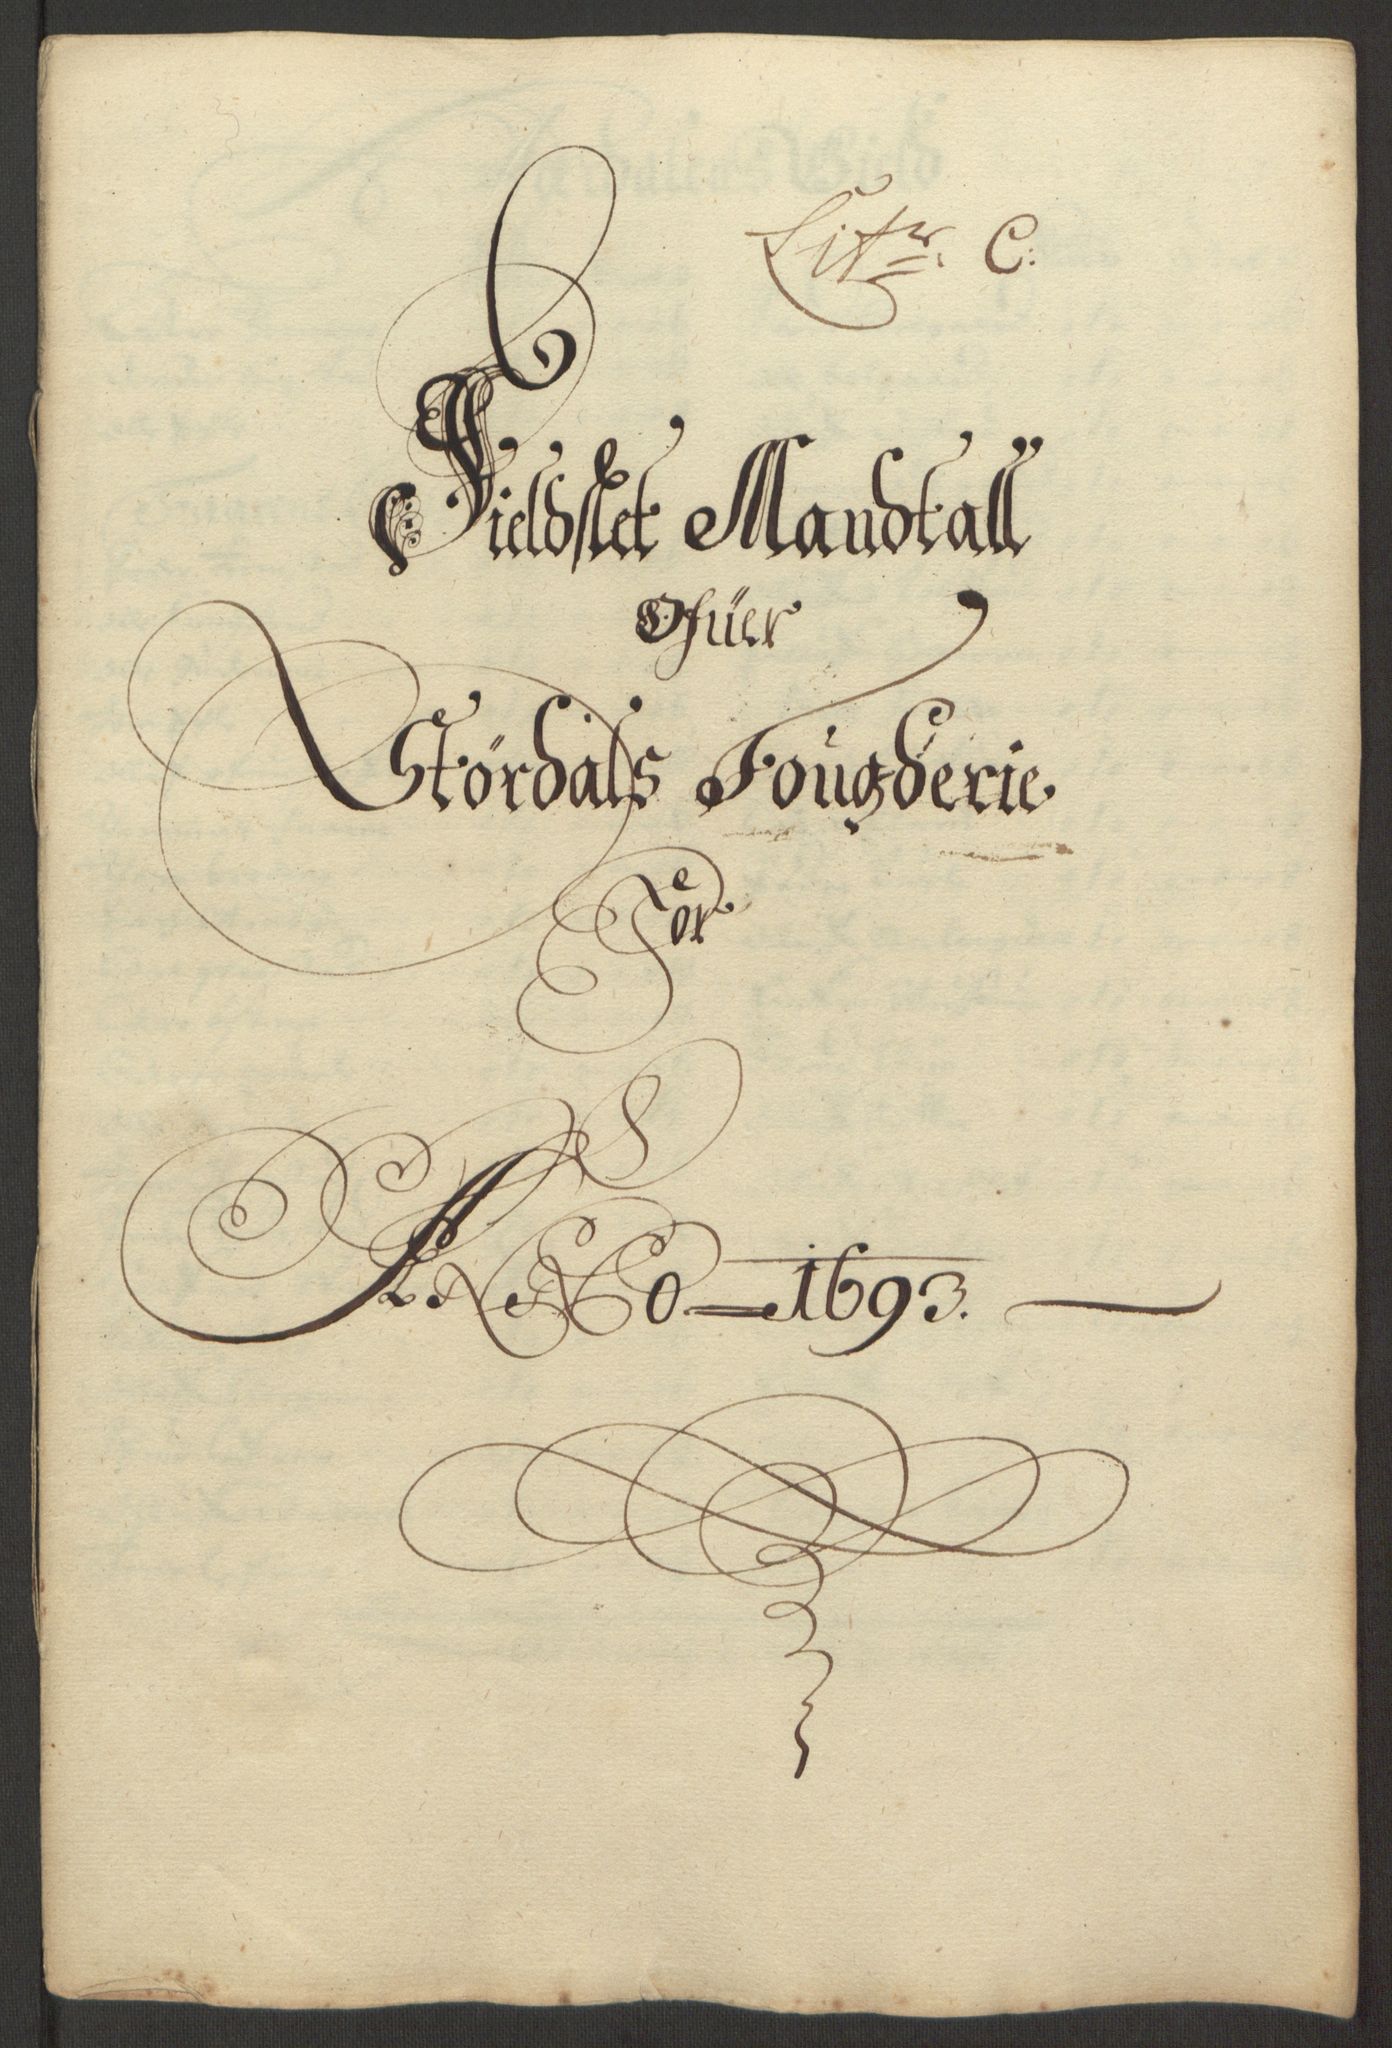 Litr. C:
Fieldskt Mandtall
Ofüer
Stördals Fougderie
For
ANNO 1693.